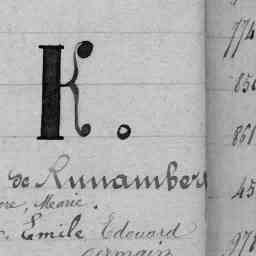 K.
de Runamberg
ore, Marie.
Emile Edouard
Germain
774
850
861
45
976